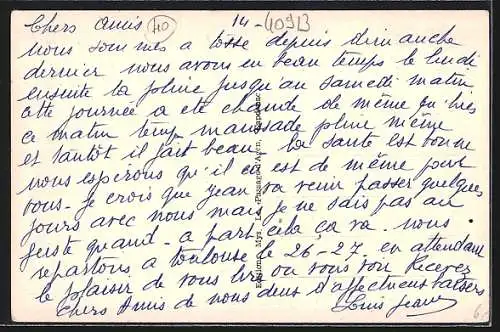 Chers Amis 40 14 - 409B
nous sommes a tosse depuis dimanche
dernier nous avons eu beau temps le lundi
ensuite la pluie jusqu'au samedi matin
cette journée a ete chaude de même qu'hier
ce matin temp maussade pluie même
et tantôt il fait beau. la sante est bonne
nous esperons qu'il en est de même pour
vous. je crois que jean va venir passer quelques
jours avec nous mais je ne sais pas au
juste quand. a part cela ça va. nous
repartons a toulouse le 26-27. en attendant
le plaisir de vous lire ou vous voir Recevez
chers Amis de nous deux d'affectueux baisers
Louis jeanne
Editions Mys. Le Passage-d'Agen